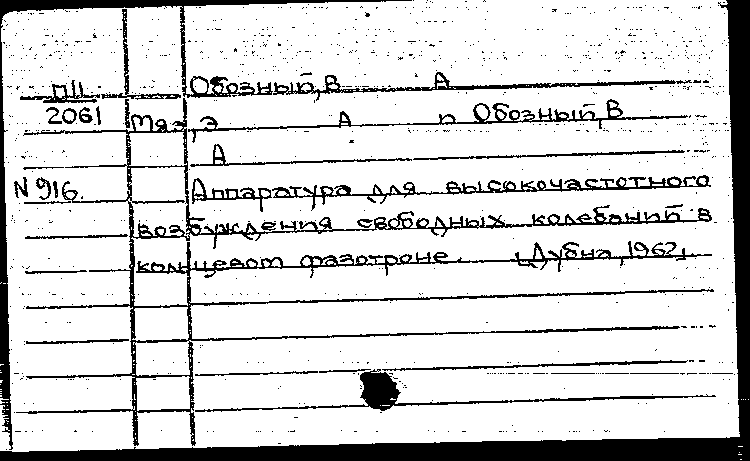 П11
2061
Обозный, В А
Мяэ, Э А п Обозный, В
А
N 916. Аппаратура для высокочастотного
возбуждения свободных колебаний в
кольцевом фазотроне. [Дубна, 1962]